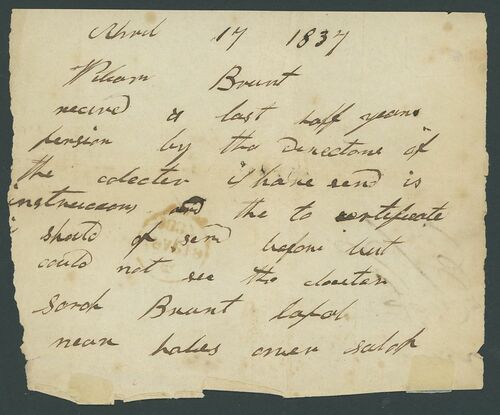 Aprel 17 1837
William Brunt
receved is last half years
pension by the directons of
the colecter i have send is
instruccons and the to certificate
should of send before but
could not see the docter
Sarah Brunt lapal
near hales owen salop